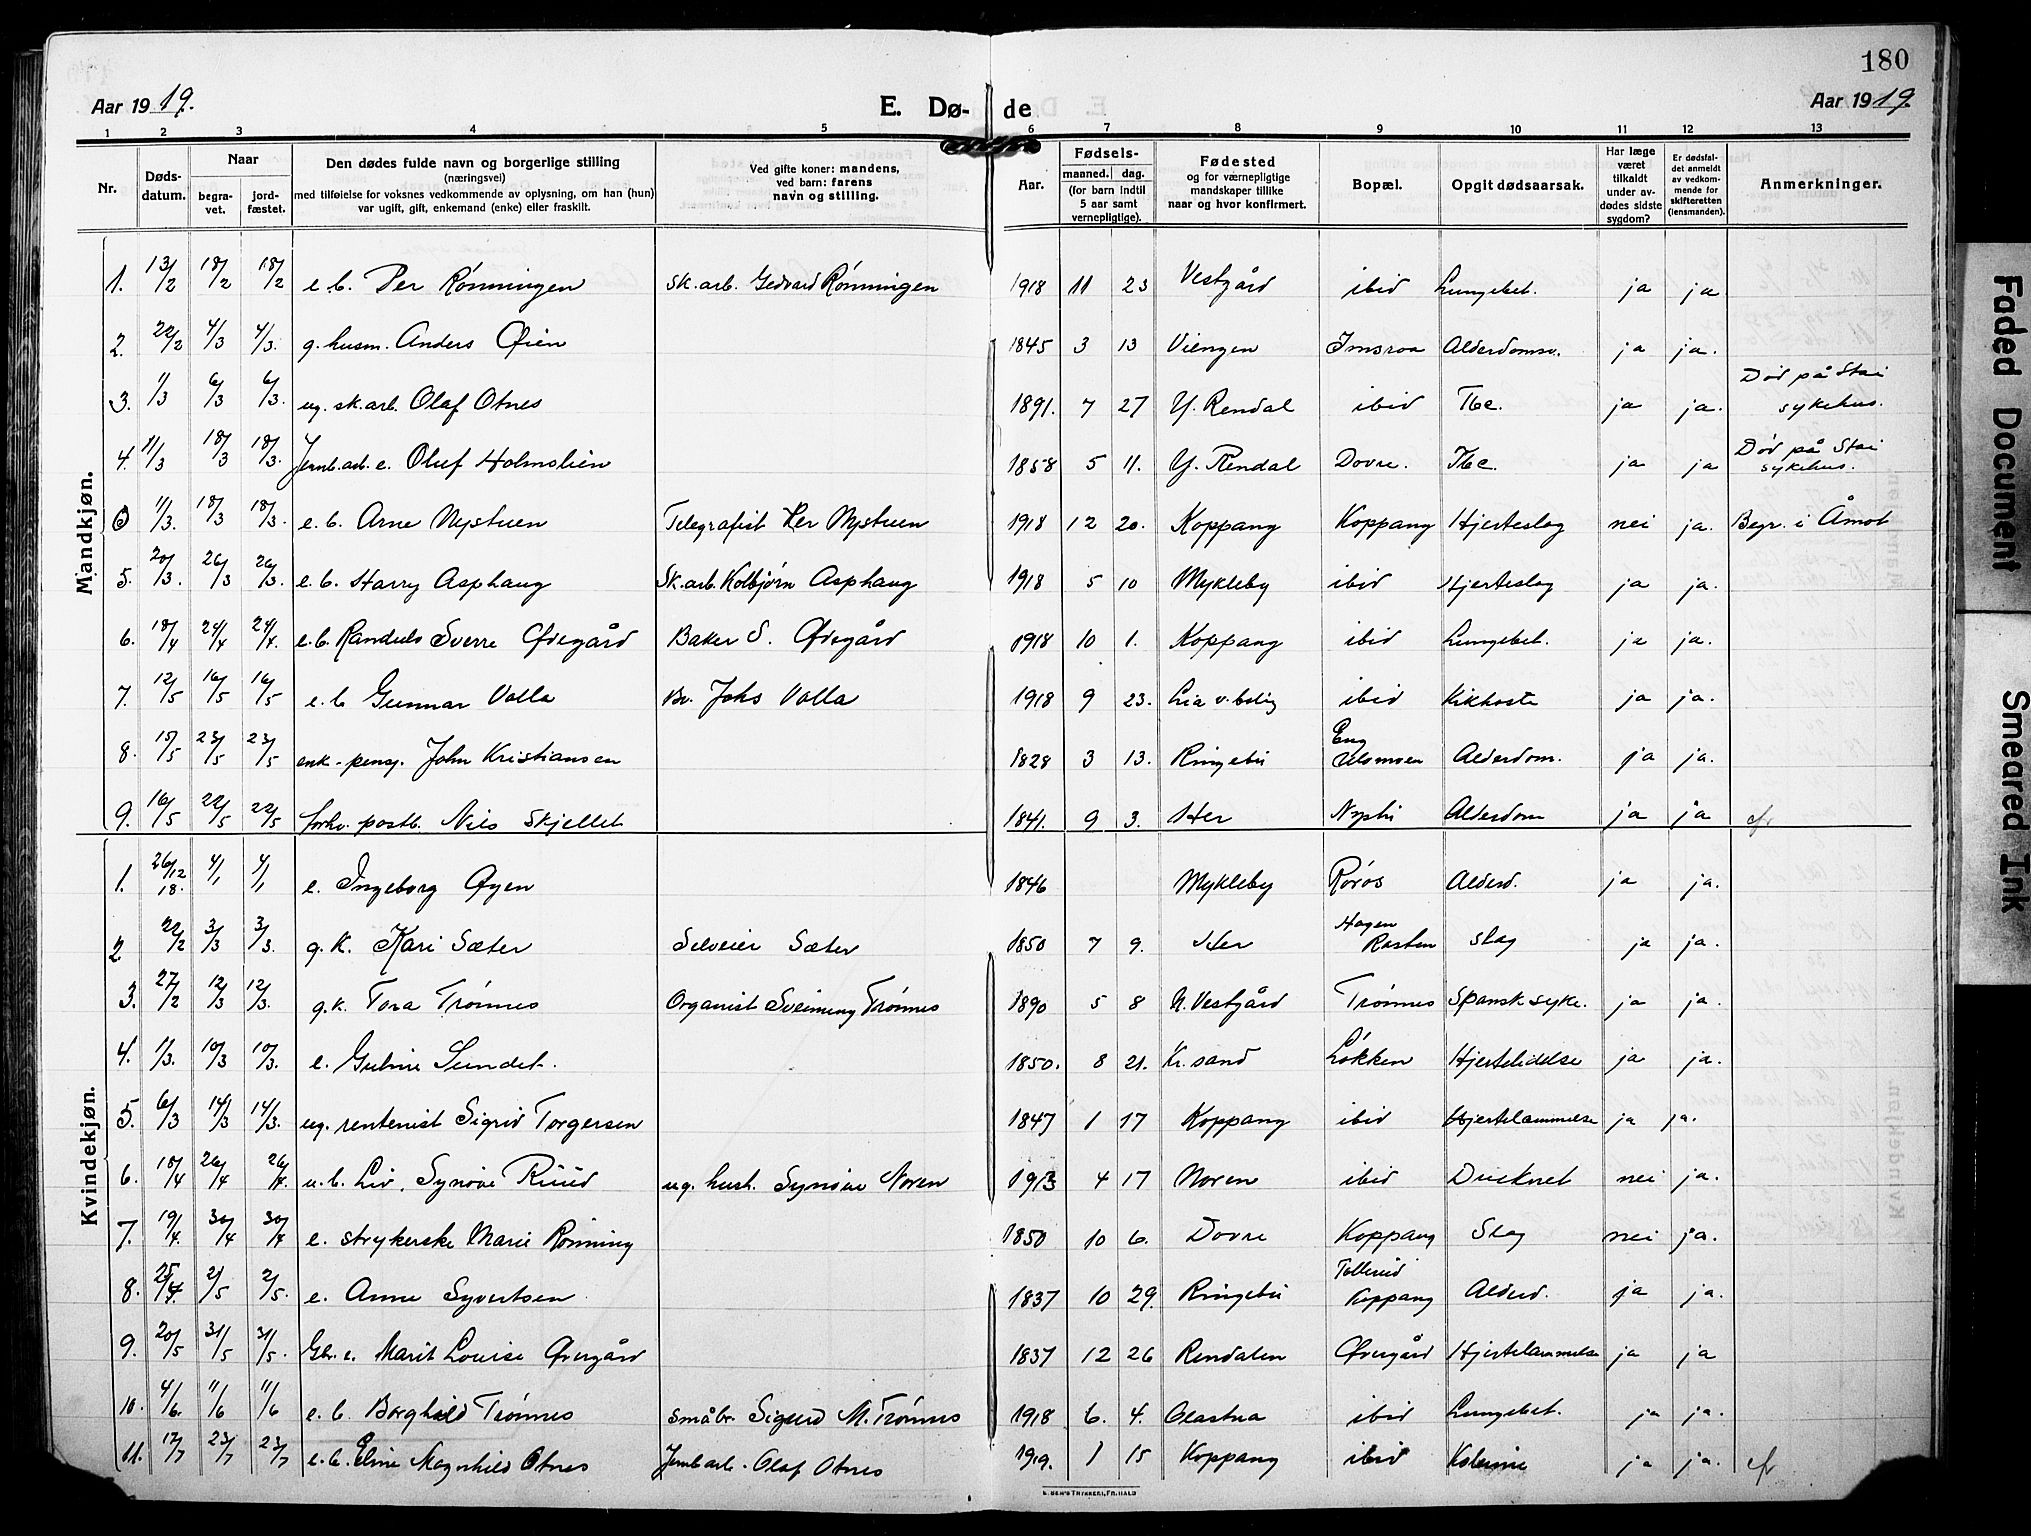 180
Aar 1919. E. Dø- de Aar 1919.
1 2 3 4 5 6 7 8 9 10 11 12 13
Nr. Døds-datum. Naar begra-vet. jord-fæstet. Den dødes fulde navn og borgerlige stilling (næringsvei) med tilføielse for voksnes vedkommende av oplysning, om han (hun) var ugift, gift, enkemand (enke) eller fraskilt. Ved gifte koner: mandens, ved barn: farens navn og stilling. Aar. Fødsels- maaned. dag. (for barn indtil 5 aar samt vernepligtige). Fødested og for værnepligtige mandskaper tillike naar og hvor konfirmert. Bopæl. Opgit dødsaarsak. Har læge været tilkaldt under av-dødes sidste sygdom? Er dødsfal-det anmeldt av vedkom-mende for skifteretten (lensmanden). Anmerkninger.
Mandkjøn.
1. 13/2 18/2 18/2 e.b. Per Rønningen Sk.arb. Gedvard Rønningen 1918 11 23 Vestgård ibid Lungebet. ja ja
2. 22/2 4/3 4/3. g. husm. Anders Øien 1845 3 13 Viengen Imsroa Alderdomsv. ja ja.
3. 1/3 6/3 6/3. ug. sk.arb. Olaf Otnes 1891. 7 27 Y. Rendal ibid Tbc. ja ja. Død på Stai sykehus.
4. 11/3 18/3 18/3. Jernb.arb. e. Oluf Holmslien 1858 5 11. Y. Rendal Dovre. Tbc. ja ja Død på Stai sykehus.
0 11/3. 18/3 18/3. e.b. Arne Nystuen Telegrafist Per Nystuen 1918 12 20. Koppang Koppang Hjerteslag nei ja. Begr. i Åmot
5. 20/3. 26/3 26/3. e.b. Harry Asphaug Sk.arb. Kolbjørn Asphaug 1918 5 10 Mykleby ibid Hjerteslag ja ja.
6. 18/4 24/4 24/4. e.b. Randulv Sverre Øvergård Baker S. Øvergård 1918 10 1. Koppang ibid Lungebet. ja ja.
7. 12/5 16/5 16/5 e.b Gunnar Volla Bv. Johs Volla 1918 9 23. Lia v. bolig ibid Kikhoste ja ja.
8. 15/5 23/5 23/5 enk-pensj. John Kristiansen 1828 3 13. Ringebu Eng Ulvmoen Alderdom. ja ja.
9. 16/5 22/5 22/5 forhv. postb. Nils Skjellet 1841. 9 3. Her Nysti Alderdom ja ja
Kvindekjøn.
1. 26/12 18. 4/1 4/1 e. Ingeborg Øyen 1846 Mykleby Røros Alderd. ja ja.
2 22/2 3/3 3/3. g.k. Kari Sæter Selveier Sæter 1850 7 9. Her Hagen Rasten Slag ja ja.
3. 27/2 12/3 12/3. g.k. Tora Trønnes Organist Sveinung Trønnes 1890 5 8 N. Vestgård Trønnes Spansk syke. ja ja.
4. 1/3. 10/3 10/3. e. Guline Sundet. 1850. 8 21. Kr.sand Løkken Hjertelidelse ja ja.
5. 6/3 14/3 14/3. ug. rentenist Sigrid Torgersen 1847 1 17 Koppang ibid Hjertelammelse ja ja.
6. 18/4 26/4 26/4. u.b. Liv Synøve Ruud ug. hush. Synøve Noren 1913 4 17 Noren ibid Druknet nei ja.
7. 19/4. 30/4 30/4 e. strykerske Marie Rønning 1850 10 6. Dovre Koppang Slag nei ja.
8. 25/4. 2/5 2/5. e. Anne Syvertsen 1837 10 29. Ringebu Tollerud Koppang Alderd. ja ja.
9. 20/5 31/5 31/5. Gbr. e. Marit Louise Øvergård 1837 12 26 Rendalen Øvergård Hjertelammelse ja ja
10. 4/6. 11/6 11/6 e.b. Borghild Trønnes Småbr. Sigurd M. Trønnes 1918 6. 4. Glastua ibid Lungebet. ja ja.
11. 17/7 23/7 23/7 e.b. Eline Magnhild Otnes Jernb.arb. Olaf Otnes 1919. 1 15 Koppang ibid Kolerine ja ja.
E. SEM'S TRYKKERI, FR.HALD
Faded Document
Smeared Ink